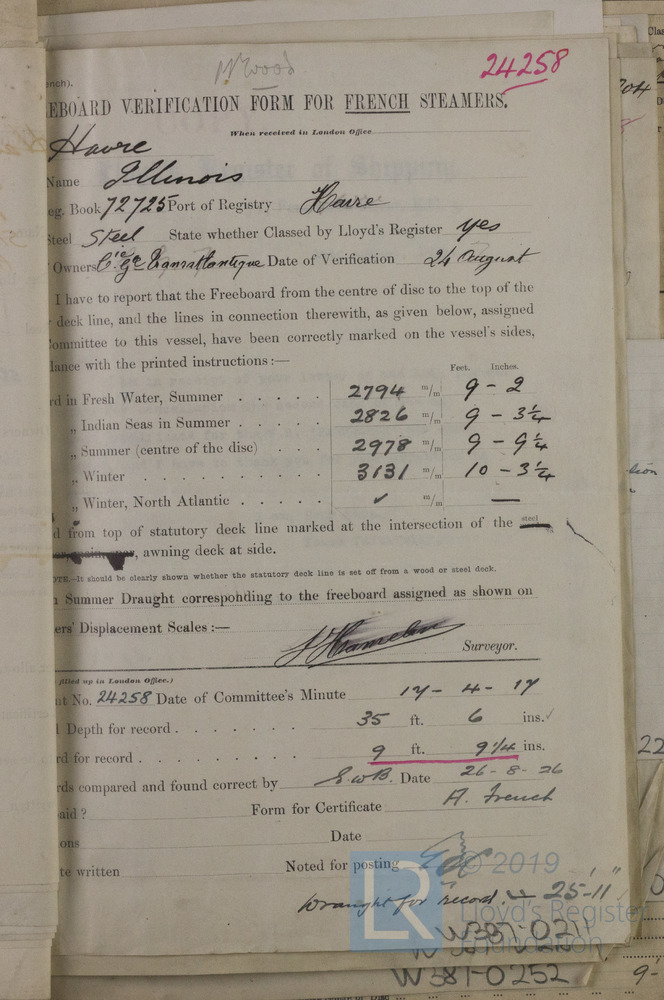 24258
ench).
EBOARD VERIFICATION FORM FOR FRENCH STEAMERS.
When received in London Office
Havre
Name Illinois
eg. Book 72725 Port of Registry Havre
Steel Steel State whether Classed by Lloyd's Register yes
Owners Cie Gle Transatlantique Date of Verification 24 August
I have to report that the Freeboard from the centre of disc to the top of the
deck line, and the lines in connection therewith, as given below, assigned
Committee to this vessel, have been correctly marked on the vessel's sides,
dance with the printed instructions :—
Feet. Inches.
rd in Fresh Water, Summer . . . . . 2794 m/m 9 - 2
„ Indian Seas in Summer . . . . . 2826 m/m 9 - 3¼
„ Summer (centre of the disc) . . . 2978 m/m 9 - 9¼
„ Winter . . . . . . . . . 3131 m/m 10 - 3¼
„ Winter, North Atlantic . . . . . ✓ m/m —
d from top of statutory deck line marked at the intersection of the steel
, awning deck at side.
OTE.—It should be clearly shown whether the statutory deck line is set off from a wood or steel deck.
Summer Draught corresponding to the freeboard assigned as shown on
ers' Displacement Scales :—
Surveyor.
filled up in London Office.)
nt No. 24258 Date of Committee's Minute 17 - 4 - 17
Depth for record . . . . . . . 35 ft. 6 ins. ✓
rd for record . . . . . . . . . 9 ft. 9¼ ins.
rds compared and found correct by E.W.B. Date 26-8-26
aid ? Form for Certificate A. French
ons Date
te written Noted for posting
© 2019
Draught for record 25'-11"
LR
Lloyd's Register
Foundation
W387-0211
W381-0252
22
9-